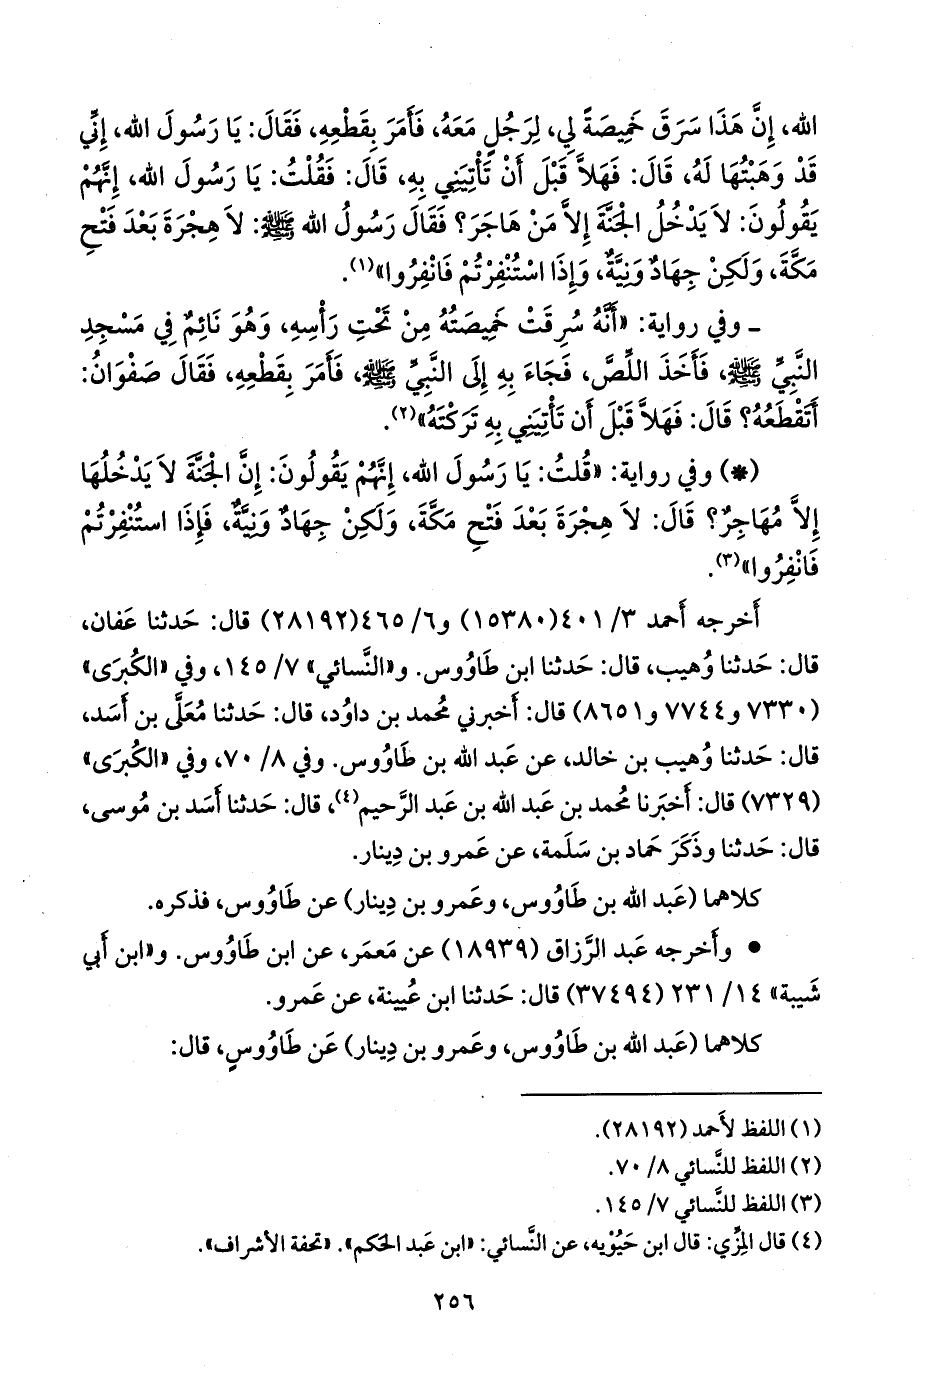 الله، إِنَّ هَذَا سَرَقَ خَمِيصَةً لِي، لِرَجُلٍ مَعَهُ، فَأَمَرَ بِقَطْعِهِ، فَقَالَ: يَا رَسُولَ الله، إِنِّي
قَدْ وَهَبْتُهَا لَهُ، قَالَ: فَهَلاَّ قَبْلَ أَنْ تَأْتِيَنِي بِهِ، قَالَ: فَقُلْتُ: يَا رَسُولَ الله، إِنَّهُمْ
يَقُولُونَ: لاَ يَدْخُلُ الجَنَّةَ إِلاَّ مَنْ هَاجَرَ؟ فَقَالَ رَسُولُ الله ﷺ: لاَ هِجْرَةَ بَعْدَ فَتْحِ
مَكَّةَ، وَلَكِنْ جِهَادٌ وَنِيَّةٌ، وَإِذَا اسْتُنْفِرْتُمْ فَانْفِرُوا»(١).
ـ وفي رواية: «أَنَّهُ سُرِقَتْ خَمِيصَتُهُ مِنْ تَحْتِ رَأْسِهِ، وَهُوَ نَائِمٌ فِي مَسْجِدِ
النَّبِيِّ ﷺ، فَأَخَذَ اللِّصَّ، فَجَاءَ بِهِ إِلَى النَّبِيِّ ﷺ، فَأَمَرَ بِقَطْعِهِ، فَقَالَ صَفْوَانُ:
أَتَقْطَعُهُ؟ قَالَ: فَهَلاَّ قَبْلَ أَن تَأْتِيَنِي بِهِ تَرَكْتَهُ»(٢).
(*) وفي رواية: «قُلتُ: يَا رَسُولَ الله، إِنَّهُمْ يَقُولُونَ: إِنَّ الجَنَّةَ لاَ يَدْخُلُهَا
إِلاَّ مُهَاجِرٌ؟ قَالَ: لاَ هِجْرَةَ بَعْدَ فَتْحِ مَكَّةَ، وَلَكِنْ جِهَادٌ وَنِيَّةٌ، فَإِذَا استُنْفِرْتُمْ
فَانْفِرُوا»(٣).
أَخرجه أَحمد ٣/ ٤٠١(١٥٣٨٠) و٦/ ٤٦٥(٢٨١٩٢) قال: حَدثنا عَفان،
قال: حَدثنا وُهيب، قال: حَدثنا ابن طَاوُوس. و«النَّسائي» ٧/ ١٤٥، وفي «الكُبرَى»
(٧٣٣٠ و٧٧٤٤ و٨٦٥١) قال: أَخبرني مُحمد بن داوُد، قال: حَدثنا مُعَلَّى بن أَسَد،
قال: حَدثنا وُهيب بن خالد، عن عَبد الله بن طَاوُوس. وفي ٨/ ٧٠، وفي «الكُبرَى»
(٧٣٢٩) قال: أَخبَرنا مُحمد بن عَبد الله بن عَبد الرَّحيم(٤)، قال: حَدثنا أَسَد بن مُوسى،
قال: حَدثنا وذَكَرَ حَماد بن سَلَمة، عن عَمرو بن دِينار.
كلاهما (عَبد الله بن طَاوُوس، وعَمرو بن دِينار) عن طَاوُوس، فذكره.
• وأَخرجه عَبد الرَّزاق (١٨٩٣٩) عن مَعمَر، عن ابن طَاوُوس. و«ابن أَبي
شَيبة» ١٤/ ٢٣١ (٣٧٤٩٤) قال: حَدثنا ابن عُيينة، عن عَمرو.
كلاهما (عَبد الله بن طَاوُوس، وعَمرو بن دِينار) عَن طَاوُوسٍ، قال:
(١) اللفظ لأَحمد (٢٨١٩٢).
(٢) اللفظ للنَّسائي ٨/ ٧٠.
(٣) اللفظ للنَّسائي ٧/ ١٤٥.
(٤) قال المِزِّي: قال ابن حَيُّوْيه، عن النَّسائي: «ابن عَبد الحَكم». «تحفة الأشراف».
٢٥٦